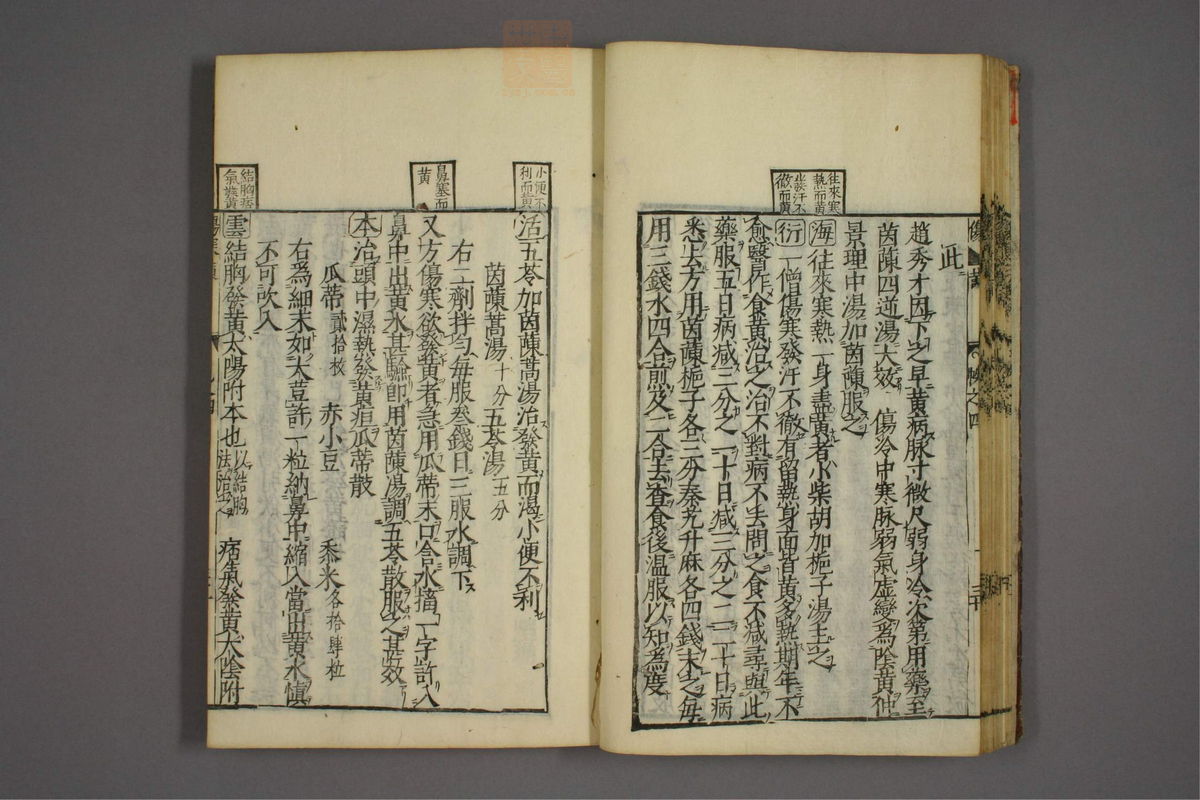 此
趙秀才因下之早黃病脉寸微尺弱身冷次第用藥至
茵蔯四逆湯大效 傷冷中寒脉弱氣虚變為陰黃仲
景理中湯加茵蔯服之
往來寒
熱而黃
海往來寒熱一身盡黃者小柴胡加梔子湯主之
發汗不
徹而黃
衍一僧傷寒發汗不徹有留熱身面皆黃多熱期年不
愈醫作食黃治之治不對病不去問之食不减尋與此
藥服五日病减三分之一十日减三分之二二十日病
悉去方用茵蔯梔子各三分秦艽升麻各四錢末之每
用三錢水四合煎及二合去査食後溫服以知為度
小便不
利而黃
活五苓加茵蔯蒿湯治發黃而渴小便不利
茵蔯蒿湯十分 五苓湯五分
右二劑拌匀每服叁錢日三服水調下
鼻塞而
黃
又方傷寒欲發黃者急用瓜蒂末口含水搐一字許入
鼻中出黃水甚驗即用茵蔯湯調五苓散服之甚效
本治頭中濕熱發黃疸瓜蒂散
瓜蒂貳拾枚 赤小豆 黍米各拾肆粒
右為細末如大荳許一粒納鼻中縮入當出黃水慎
不可吹入
結胸痞
氣發黃
雲結胸發黃太陽附本也以結胸法治之 痞氣發黃太陰附